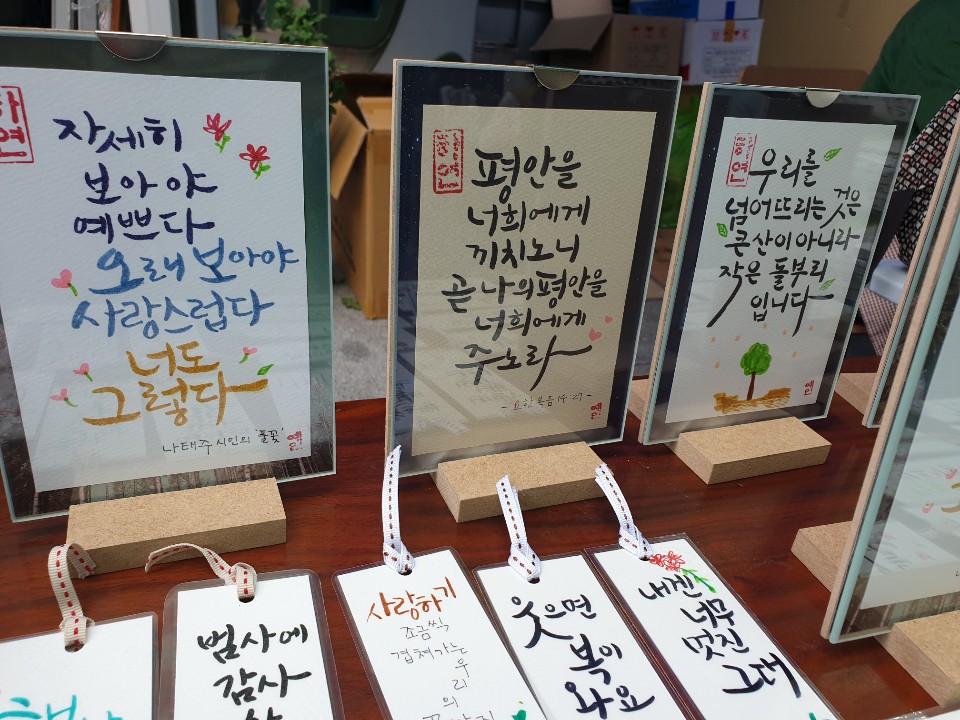 자세히
보아야
예쁘다
오래 보아야
사랑스럽다
너도
그렇다
나태주 시인의 '풀꽃'
평안을
너희에게
끼치노니
곧 나의 평안을
너희에게
주노라
- 요한복음 14:27 -
우리를
넘어뜨리는 것은
큰 산이 아니라
작은 돌부리
입니다
범사에
감사
사랑하기
조금씩
겹쳐가는
우리
의
웃으면
복이
와요
내겐
너무
멋진
그대